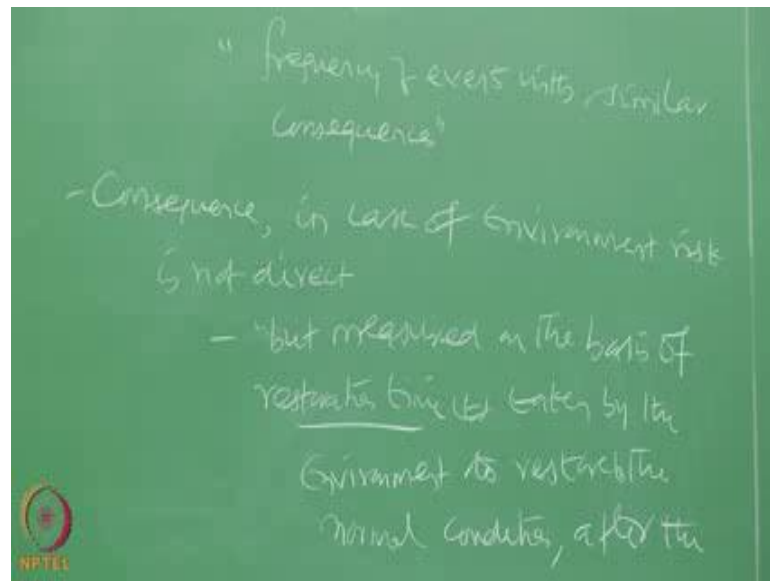 " frequency of events with similar
consequence"
- Consequence, in case of Environment risk
is not direct
- "but measured on the basis of
restoration time taken by the
Environment to restore the
normal condition, after the
NPTEL